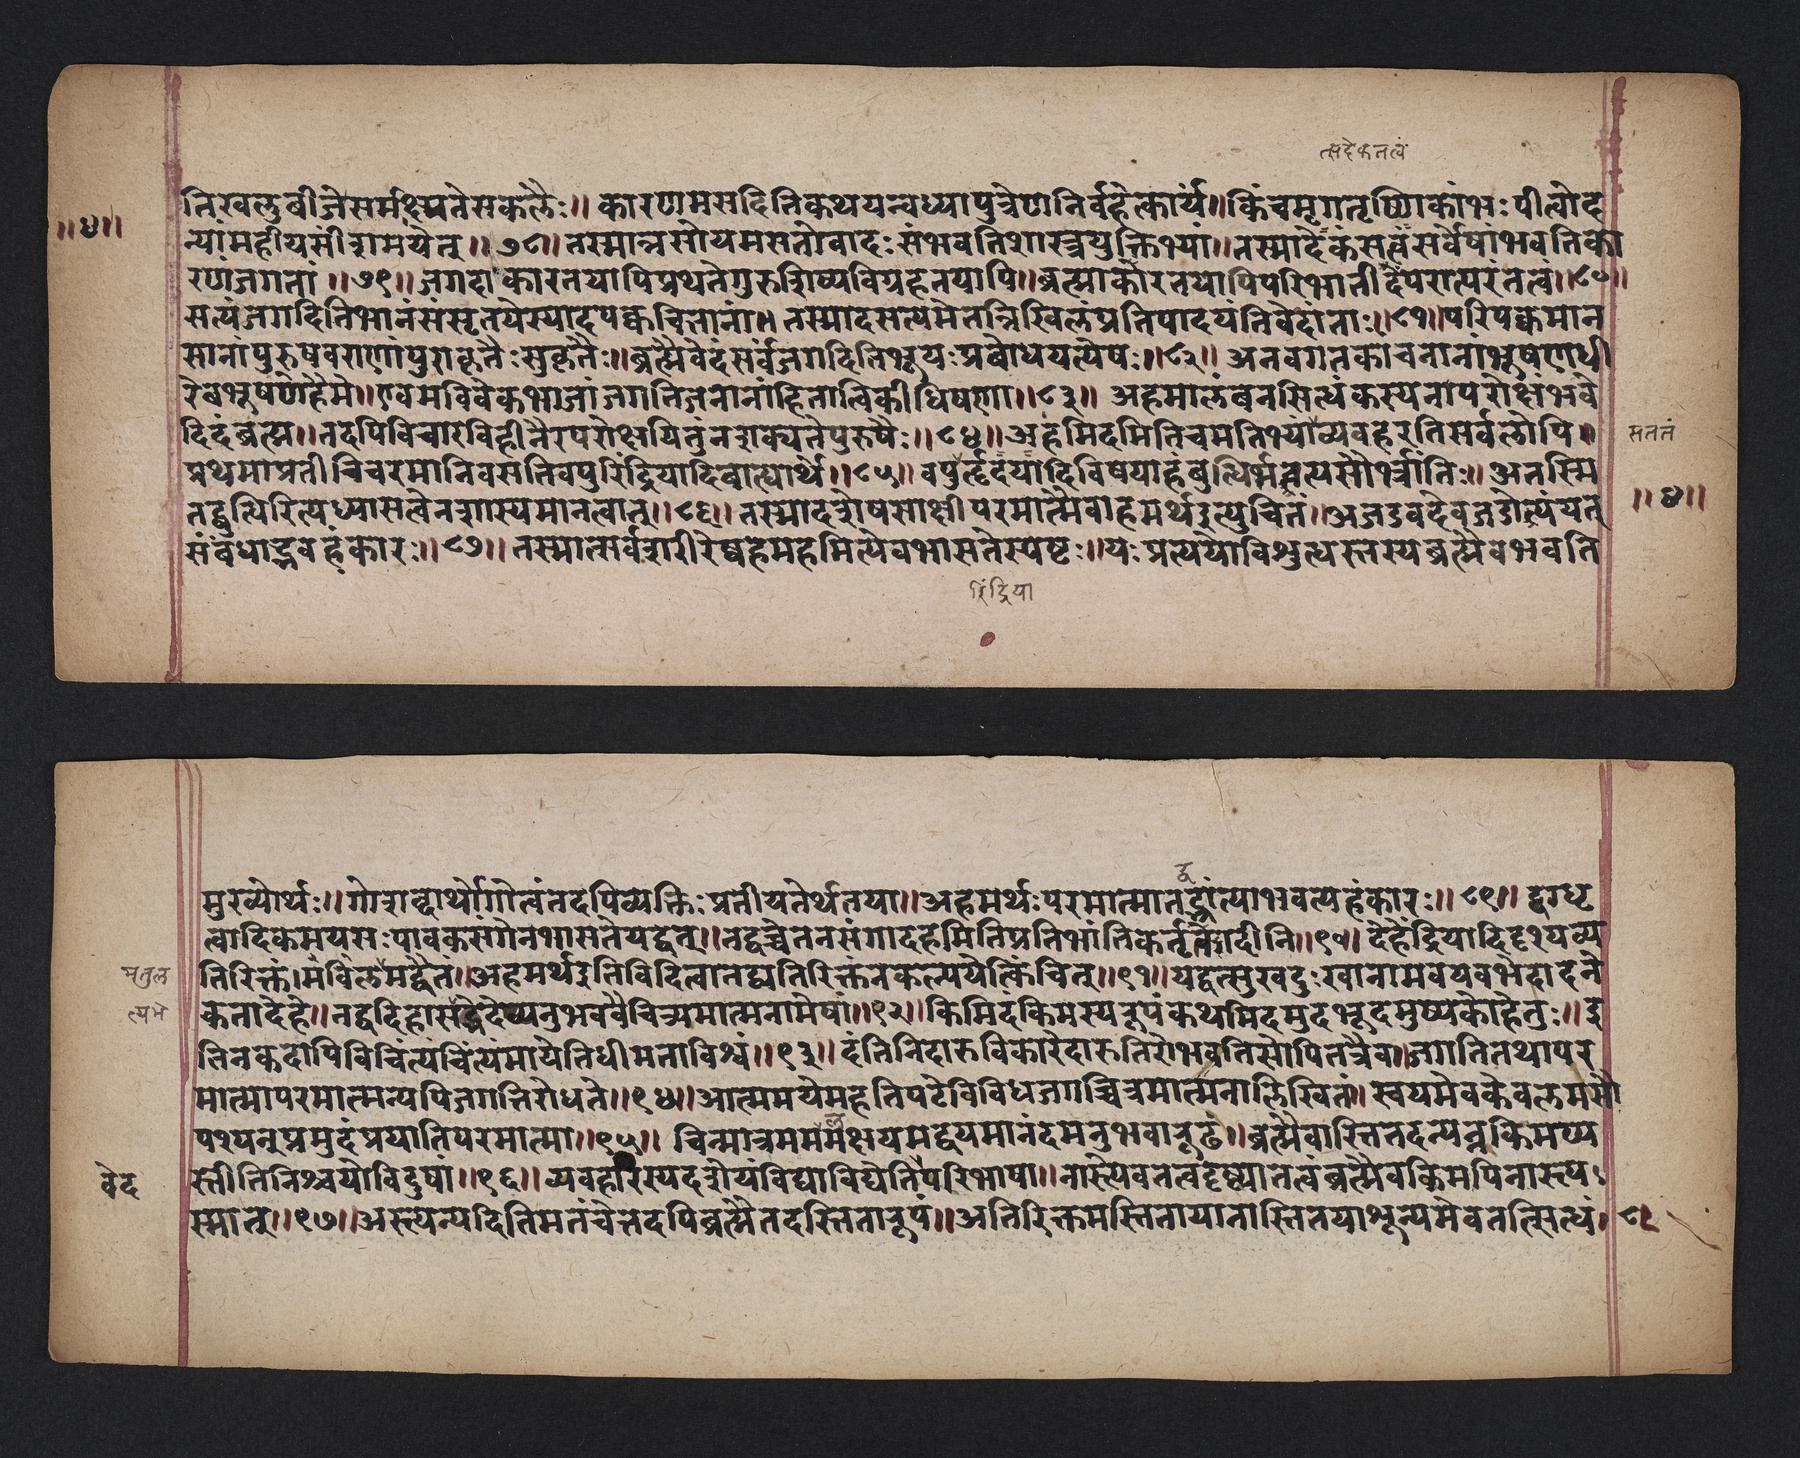 त्सदेकतत्वं
तिखलुबीजेसमर्प्यतेसकलैः॥ कारणमसदितिकथयन्वध्यापुत्रेणनिर्वहेत्कार्यं॥किंचमृगतृष्णिकांभःपीत्वोद
॥४॥ न्यांमहीयसींशमयेत्॥७८॥तस्मान्नसोयमसतोवादःसंभवतिशास्त्रयुक्तिभ्यां॥तस्मादेकंसत्वंसर्वेषांभवतिका
रणंजगतां॥७९॥जगदाकारतयापिप्रथतेगुरुशिष्यविग्रहतयापि॥ब्रह्माकारतयापिपरिभातीदंपरात्परंतत्वं॥८०॥
सत्यंजगदितिभानंसंसृतयेस्यादपक्वचित्तानां॥तस्मादसत्यमेतन्निखिलंप्रतिपादयंतिवेदांताः॥८१॥परिपक्वमान
सानांपुरुषवराणांपुराकृतैःसुकृतैः॥ब्रह्मैवेदंसर्वंजगदितिभूयःप्रबोधयत्येषः॥८२॥ अनवगतकाचनानांभूषणधी
रेवभूषणेहैमे॥एवमविवेकभाजांजगतिजनानांहितात्विकीधिषणा॥८३॥ अहमालंबनसित्धंकस्यनापरोक्षंभवे
दिदंब्रह्म॥तदपिविचारविहीनैरपरोक्षयितुंनशक्यतेपुरुषैः॥८४॥अहमिदमितिचमतिभ्यांव्यवहरतिसर्वलोपि॥ सततं
प्रथमाप्रतीचिचरमानिवसतिवपुरिंद्रियादिबाह्यार्थे॥८५॥वपुर्हृदयादिविषयाहंबुत्धिर्भवत्यसौर्भ्रांतिः॥अतस्मिं
तद्बुत्धिरित्यध्यासत्वेनशास्यमानत्वात्॥८६॥तस्मादशेषसाक्षीपरमात्मैवाहमर्थइत्युचितं॥अजडवदेवजडोत्यंयत् ॥४॥
संबंधाद्भवहंकारः॥८७॥तस्मात्सर्वशरीरेष्वहमहमित्येवभासतेस्पष्टः॥यःप्रत्ययोविशुत्धस्तस्यब्रह्मैवभवति
रिंद्रिया
द्व
मुख्योर्थः॥गोशब्दार्थोगोत्वंतदपिव्यक्तिःप्रतीयतेर्थतया॥अहमर्थःपरमात्मातद्भ्रांत्याभवत्यहंकारः॥८९॥ दग्धृ
त्वादिकमयसःपावकसंगेनभासतेयद्वत्॥तद्वच्चेतनसंगादहमितिप्रतिभांतिकर्तृतादीनि॥९०॥देहेंद्रियादिदृश्यव्य
मतुल तिरिक्तं।मविलमद्वैतं॥अहमर्थइतिविदित्वातद्व्यतिरिक्तंनकल्पयेत्किंचित्॥९१॥यद्वत्सुखदुःखानामवयवभेदादने
त्यमे कतादेहे॥तद्वदिहासंद्भेदेप्यनुभववैचित्र्यमात्मनामेषां॥९२॥किमिदंकिमस्यरूपंकथमिदमुदभूदमुष्यकोहेतुः॥इ
तिनकदापिविचिंत्यंचिंत्यंमायेतिधीमताविश्वं॥९३॥दंतिनिदारुविकारेदारुतिरोभवतिसोपितत्रैव॥जगतितथापर
मात्मापरमात्मन्यपिजगत्तिरोधत्ते॥९४॥आत्ममयेमहतिपटेविविधजगच्चित्रमात्मनालिखितं॥स्वयमेवकेवलमसौ
पश्यन्प्रमुदंप्रयातिपरमात्मा॥९५॥ चिन्मात्रमममक्षयमद्वयमानंदमनुभवारूढं॥ब्रह्मैवास्तितदन्यन्नकिमप्य
वेद स्तीतिनिश्चयोविदुषां॥९६॥व्यवहारस्यदशेयंविद्याविद्येतिपरिभाषा॥नास्त्येवतत्वदृष्ट्यातत्वंब्रह्मैवकिमपिनास्त्य
स्मात्॥९७॥अस्त्यन्यदितिमतंचेत्तदपिब्रह्मैतदस्तितारूपं॥अतिरिक्तमस्तितायानास्तितयाशून्यमेवतत्सित्धं॥९८